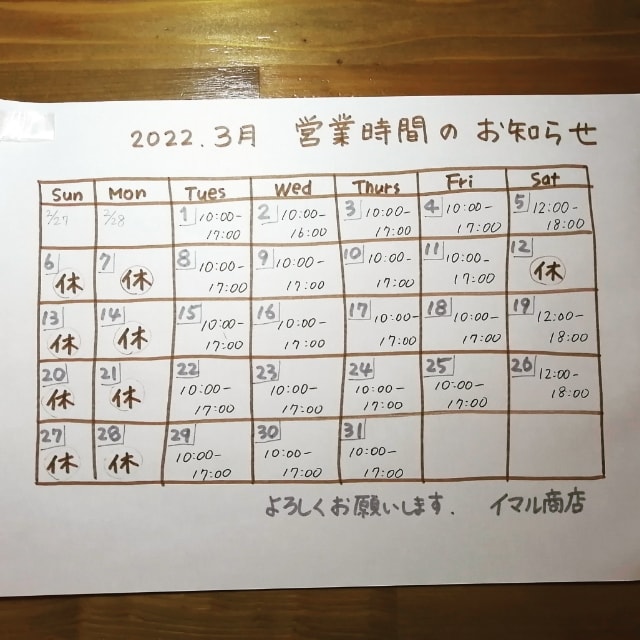 2022.3月 営業時間のお知らせ
Sun Mon Tues Wed Thurs Fri Sat
2/27 2/28 1 10:00-17:00 2 10:00-16:00 3 10:00-17:00 4 10:00-17:00 5 12:00-18:00
6 休 7 休 8 10:00-17:00 9 10:00-17:00 10 10:00-17:00 11 10:00-17:00 12 休
13 休 14 休 15 10:00-17:00 16 10:00-17:00 17 10:00-17:00 18 10:00-17:00 19 12:00-18:00
20 休 21 休 22 10:00-17:00 23 10:00-17:00 24 10:00-17:00 25 10:00-17:00 26 12:00-18:00
27 休 28 休 29 10:00-17:00 30 10:00-17:00 31 10:00-17:00
よろしくお願いします. イマル商店